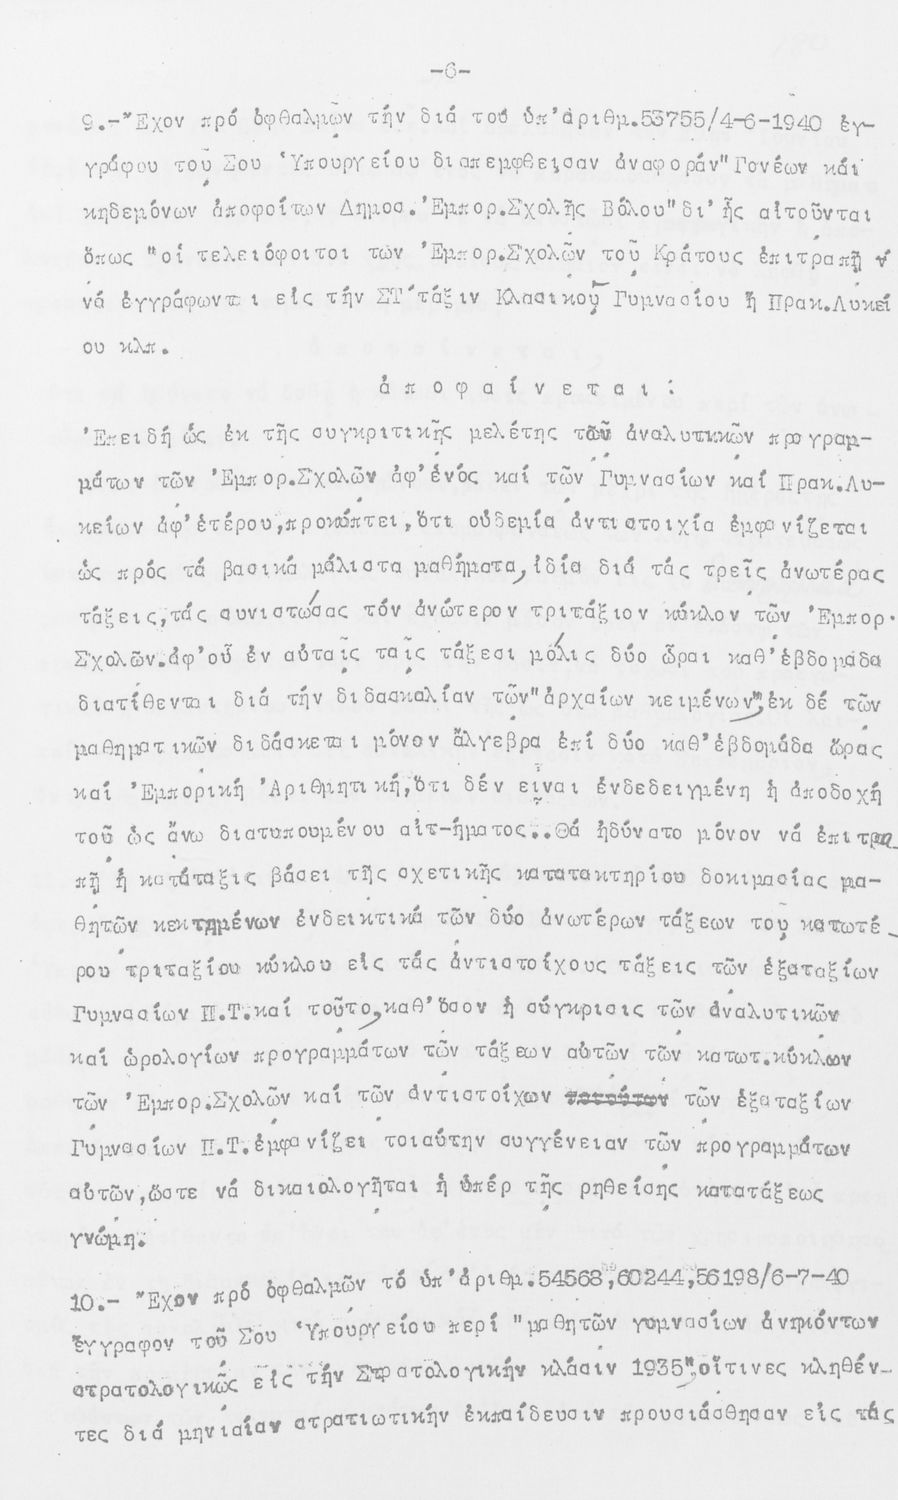 -6-
9.-"Ἔχον πρό ὀφθαλμῶν τήν διά τοῦ ὑπ'ἀριθμ.53755/4-6-1940 ἐγ-
γράφου τοῦ Σου Ὑπουργείου διαπεμφθεισαν ἀναφοράν"Γονέων καί
κηδεμόνων ἀποφοίτων Δημοσ.Ἐμπορ.Σχολῆς Βόλου"δι'ἧς αἰτοῦνται
ὅπως "οἱ τελειόφοιτοι τῶν Ἐμπορ.Σχολῶν τοῦ Κράτους ἐπιτραπῇ ν
νά ἐγγράφωνται εἰς τήν ΣΤ'τάξιν Κλασικοῦ Γυμνασίου ἤ Πρακ.Λυκεί
ου κλπ.
ἀ π ο φ α ί ν ε τ α ι :
Ἐπειδή ὡς ἐκ τῆς συγκριτικῆς μελέτης τῶν ἀναλυτικῶν προγραμ-
μάτων τῶν Ἐμπορ.Σχολῶν ἀφ'ἑνός καί τῶν Γυμνασίων καί Πρακ.Λυ-
κείων ἀφ'ἑτέρου,προκύπτει,ὅτι οὐδεμία ἀντιστοιχία ἐμφανίζεται
ὡς πρός τά βασικά μάλιστα μαθήματα,ἰδία διά τάς τρεῖς ἀνωτέρας
τάξεις,τάς συνιστώσας τόν ἀνώτερον τριτάξιον κύκλον τῶν Ἐμπορ.
Σχολῶν.ἀφ'οὗ ἐν αὐταῖς ταῖς τάξεσι μόλις δύο ὧραι καθ'ἑβδομάδα
διατίθενται διά τήν διδασκαλίαν τῶν"ἀρχαίων κειμένων",ἐκ δέ τῶν
μαθηματικῶν διδάσκεται μόνον ἄλγεβρα ἐπί δύο καθ'ἑβδομάδα ὥρας
καί Ἐμπορική Ἀριθμητική,ὅτι δέν εἶναι ἐνδεδειγμένη ἡ ἀποδοχή
τοῦ ὡς ἄνω διατυπουμένου αἰτ-ήματος..Θά ἠδύνατο μόνον νά ἐπιτρα
πῇ ἡ κατάταξις βάσει τῆς σχετικῆς κατατακτηρίου δοκιμασίας μα-
θητῶν κεκτημένων ἐνδεικτικά τῶν δύο ἀνωτέρων τάξεων τοῦ κατωτέ
ρου τριταξίου κύκλου εἰς τάς ἀντιστοίχους τάξεις τῶν ἑξαταξίων
Γυμνασίων Π.Τ.καί τοῦτο,καθ'ὅσον ἡ σύγκρισις τῶν ἀναλυτικῶν
καί ὡρολογίων προγραμμάτων τῶν τάξεων αὐτῶν τῶν κατωτ.κύκλων
τῶν Ἐμπορ.Σχολῶν καί τῶν ἀντιστοίχων τῶν ἑξαταξίων
Γυμνασίων Π.Τ.ἐμφανίζει τοιαύτην συγγένειαν τῶν προγραμμάτων
αὐτῶν,ὥστε νά δικαιολογῆται ἡ ὑπέρ τῆς ρηθείσης κατατάξεως
γνώμη.
10.- Ἔχον πρό ὀφθαλμῶν τό ὑπ'ἀριθμ.54568,60244,56198/6-7-40
ἔγγραφον τοῦ Σου Ὑπουργείου περί "μαθητῶν γυμνασίων ἀνηκόντων
στρατολογικῶς εἰς τήν Στρατολογικήν κλάσιν 1935",οἵτινες κληθέν-
τες διά μηνιαίαν στρατιωτικήν ἐκπαίδευσιν προυσιάσθησαν εἰς τάς